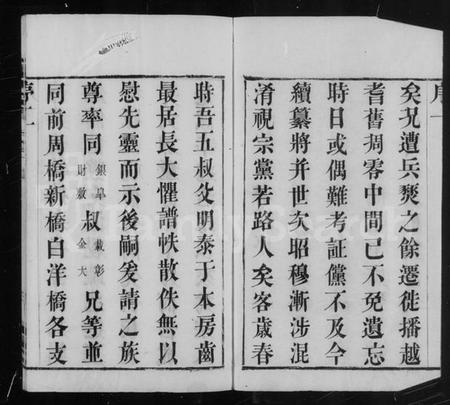 矣況遭兵燹之餘遷徙播越
耆舊凋零中間已不免遺忘
時日或偶難考証儻不及今
續纂將并世次昭穆漸涉混
淆視宗黨若路人矣客歲春
時吾五叔父明泰于本房齒
最居長大懼譜帙散佚無以
慰先靈而示後嗣爰請之族
尊率同銀皐財敖叔裁彰金大兄等並
同前周橋新橋白洋橋各支